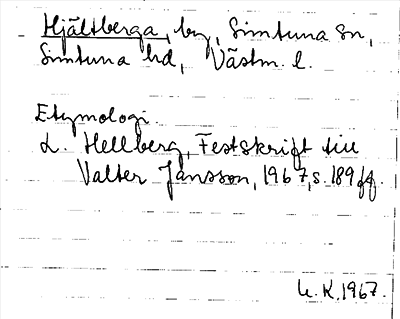 Hjältberga, by, Simtuna sn,
Simtuna hd, Västm. l.
Etymologi.
L. Hellberg, Festskrift till
Valter Jansson, 1967, s. 189 ff.
U. K. 1967.